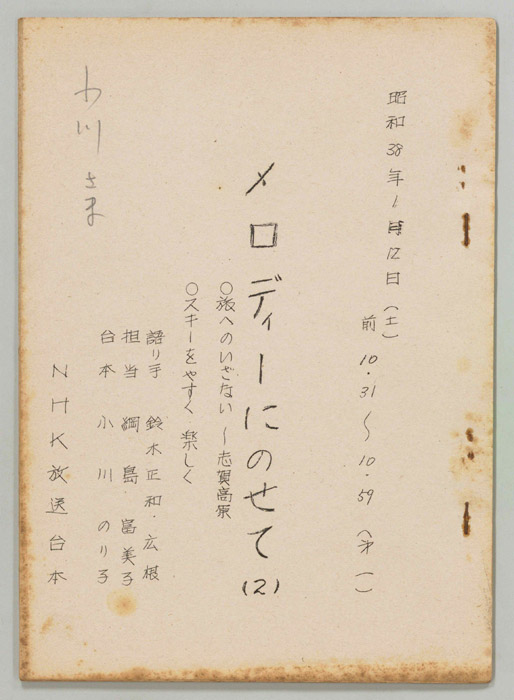 昭和38年1月12日(土)
前 10.31〜10.59(第一)
メロディーにのせて(2)
○旅へのいざない 〜志賀高原
○スキーをやすく 楽しく
語り手 鈴木正和・広根
担当 綱島 富美子
台本 小川 のり子
NHK放送台本
小川 さま